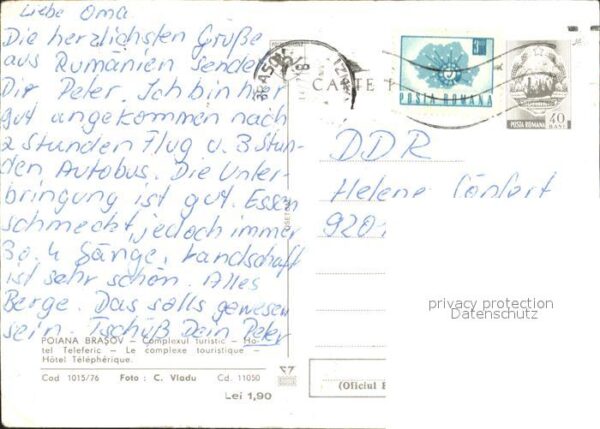 Liebe Oma
Die herzlichsten Grüße
aus Rumänien sendet
Dir Peter. Ich bin hier
gut angekommen nach
2 Stunden Flug u. 3 Stun-
den Autobus. Die Unter-
bringung ist gut. Essen
schmeckt, jedoch immer
3 o. 4 Gänge, Landschaft
ist sehr schön. Alles
Berge. Das solls gewesen
sein. Tschüß Dein Peter
POIANA BRAȘOV — Complexul turistic — Ho-
tel Teleferic — Le complexe touristique —
Hôtel Téléphérique.
Cod 1015/76 Foto : C. Vladu Cd. 11050
Lei 1,90
BRAȘOV
CARTE
POSTA ROMANA
POSTA ROMANA
40
BANI
DDR
Helene
9201
privacy protection
Datenschutz
(Oficiul